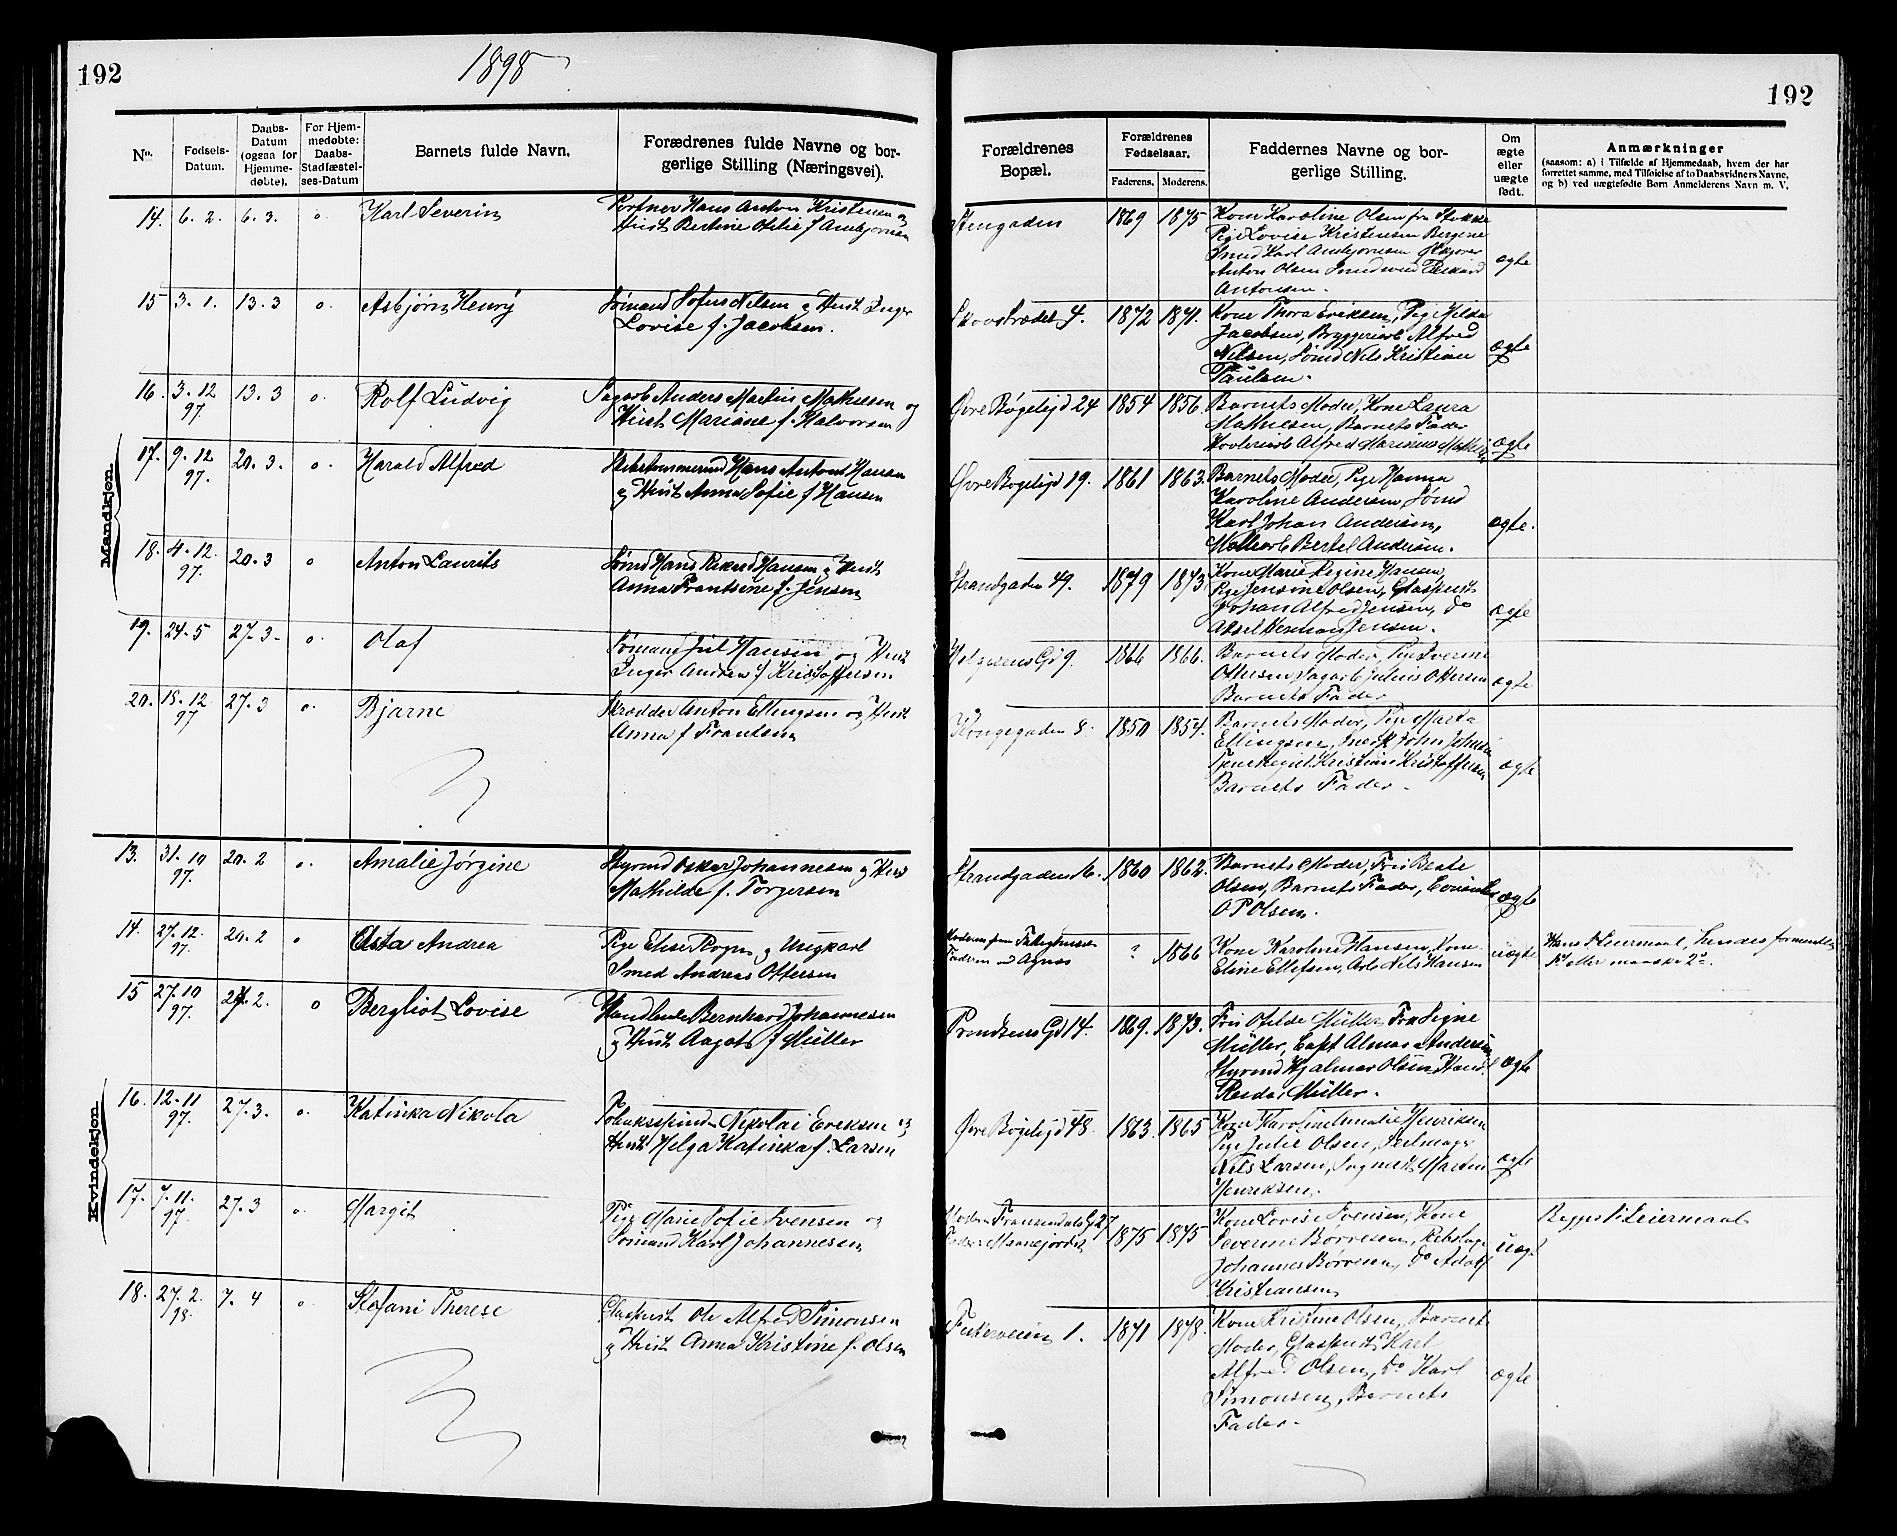 192
1898
192
No.
Fødsels-Datum.
Daabs-Datum (ogsaa for Hjemmedøbte).
For Hjemmedøbte: Daabs-Stadfæstelses-Datum
Barnets fulde Navn.
Forædrenes fulde Navne og borgerlige Stilling (Næringsvei).
Forældrenes Bopæl.
Forældrenes Fødselsaar.
Faderens. Moderens.
Faddernes Navne og borgerlige Stilling.
Om ægte eller uægte født.
Anmærkninger
(saasom: a) i Tilfælde af Hjemmedaab, hvem der har
forrettet samme, med Tilføielse af to Daabsvidners Navne,
og b) ved uægtefødte Børn Anmelderens Navn m. V.
Mandkjøn.
14. 6. 2. 6. 3. o Karl Severin
Portner Hans Anton Kristensen og
Hust Bertine Otilie f Ambjørnsen
Stengaden 1869 1875
Kone Karoline Olsen fra Stokke
Pige Lovise Kristensen Bergene
Smed Karl Ambjørnsen
Anton Olsen
Antonsen.
ægte
15 3. 1. 13. 3 o. Asbjørn Henry
Sømand Sofus Nilsen og Hust Inger
Lovise f. Jacobsen.
Skovstrædet 4. 1872 1871.
Kone Thora Eriksen, Pige Hilda
Jacobsen, Bryggeriarb Alfred
Nilsen, Sømd Nils Kristian
Paulsen.
ægte
16. 3. 12 97 13. 3 o. Rolf Ludvig
Sagarb Anders Martin Mathisen og
Hust Mariane f. Halvorsen
Øvre Bøgeligd 24 1854 1856.
Barnets Moder, Kone Laura
Mathiesen, Barnets Fader
Høvleriarb Alfred Marinius
ægte
17. 9. 12 97. 20. 3. o. Harald Alfred
Hans Anton Hansen
og Hust Anna Sofie f Hansen
Øvre Bøgeligd 19. 1861 1863.
Barnets Moder, Pige Hanna
Karoline Andersen Sømd
Karl Johan Andersen,
Bertel Andersen.
ægte.
18. 4. 12. 97. 20. 3 o Anton Laurits
Sømd Hans Hansen og Hust
Anna Frantsine f. Jensen
Strandgaden 49. 1879 1873
Kone Marie Regine Hansen,
Pige Jensine Olsen, Glaspust
Johan Alfred Jensen, do
Aksel Herman Jensen.
ægte
19. 24. 5 27. 3. o. Olaf
Sømand Jul Hansen og Hust
Inger Andrea f Kristoffersen
Gd 9. 1866 1866.
Barnets Moder, Pige
Ottersen, Sagarb Julius Ottersen
Barnets Fader
ægte
20. 18. 12 97 27. 3 o. Bjarne
Skrædder Anton Ellingsen og Hust
Anna f Frantsen
Kongegaden 8. 1850 1854.
Barnets Moder, Pige Marta
Ellingsen, John
Kristine Kristoffersen
Barnets Fader.
ægte
Kvindekjøn.
13. 31. 10 97. 20. 2 o. Amalie Jørgine
Styrmd Oskar Johannesen og Hust
Mathilde f. Torgersen
Strandgaden 16. 1860 1862.
Barnets Moder, Frø Beate
Olsen, Barnets Fader,
O P Olsen.
ægte
14. 27. 12. 97. 20. 2 o Asta Andrea
Pige Elise Rogn og Ungkarl
Smed Andreas Ottersen
Moderen fra
Faderen Agnes
? 1866
Kone Karoline Hansen, Kone
Eline Ellefsen, Arb Nils Hansen
uægte
Hans 1ste Leiermaal, hendes formentlig
1st eller maaske 2det.
15 27. 10 97. 27. 2. o Bergliot Lovise
Handlende Bernhard Johannesen
og Hust Aagot f Müller
Gd 14. 1869. 1873.
Frø Otilde Müller, Fru Signe
Müller, Capt Almar Andersen
Styrmd Hjalmar Olsen
Müller.
ægte
16. 12. 11 97. 27. 3. o. Katinka Nikola
Tobaksspinder Nikolai Eriksen og
Hust Helga Katinka f. Larsen
Øvre Bøgeligd 48. 1863. 1865
Kone Karoline Amalie Henriksen
Pige Julie Olsen, Seilmager
Nils Larsen, Martin
Henriksen.
ægte
17. 7. 11. 97. 27. 3 o. Margit
Pige Marie Sofie Svensen og
Sømand Karl Johannesen
G 27
1875 1875
Kone Lovise Svensen, Kone
Severine Børresen,
Johannes Børresen, do Adolf
Kristiansen
uægt
Begges 1ste Leiermaal
18. 27. 2. 98. 7. 4 o. Stefani Therese
Glaspust Ole Alfred Simonsen
og Hust Anna Kristine f. Olsen
1. 1871 1878.
Kone Kristine Olsen, Barnets
Moder, Glaspust Karl
Alfred Olsen, do Karl
Simonsen, Barnets
Fader.
ægte